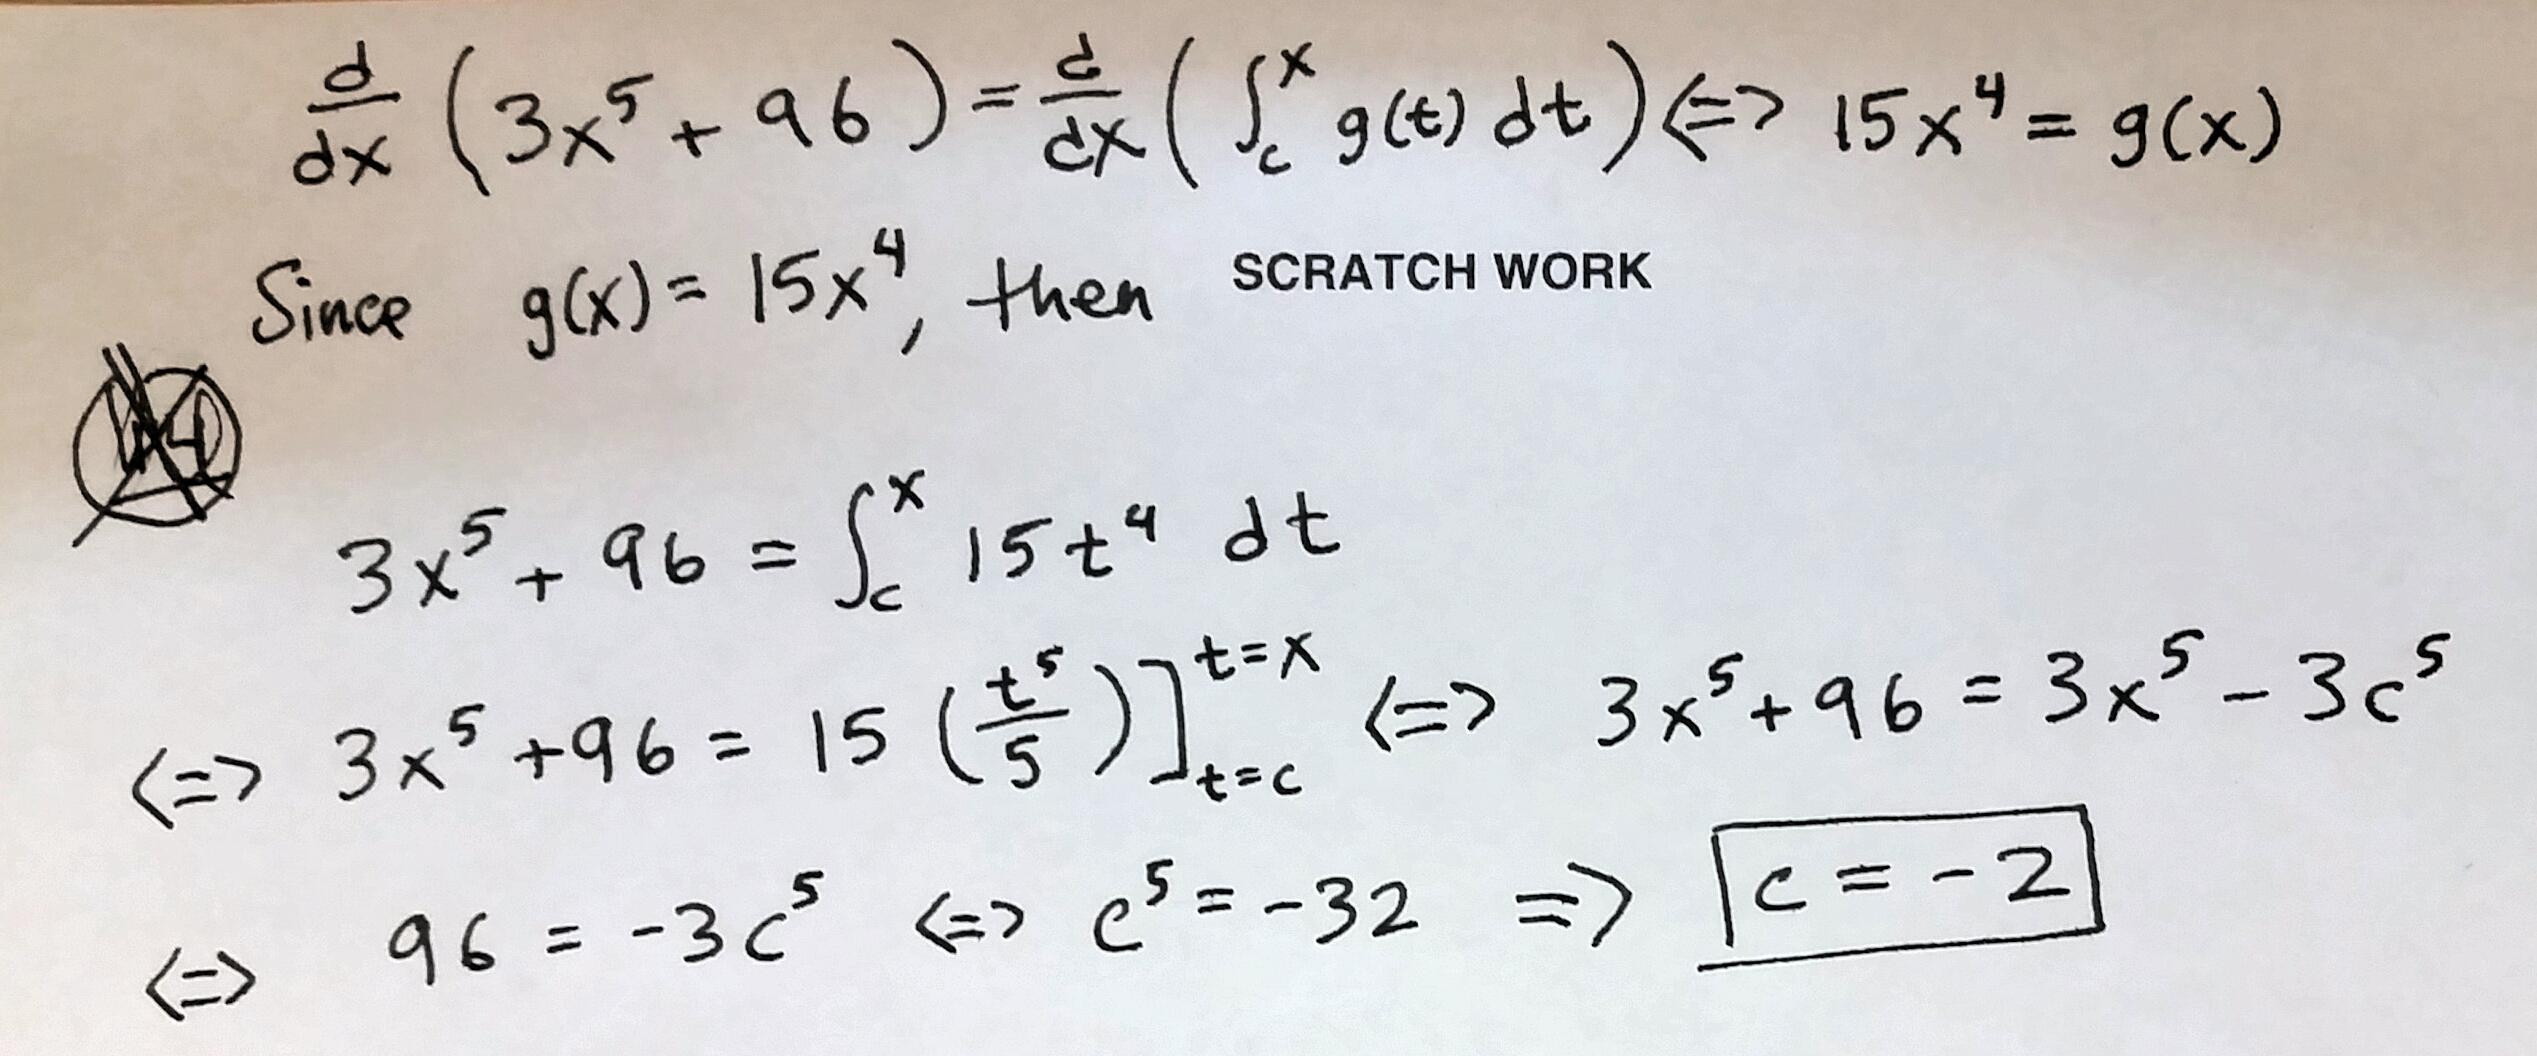 d/dx (3x⁵ + 96) = d/dx (∫_c^x g(t) dt) <=> 15x⁴ = g(x)
Since g(x) = 15x⁴, then SCRATCH WORK
3x⁵ + 96 = ∫_c^x 15t⁴ dt
<=> 3x⁵ + 96 = 15 (t⁵/5)]_{t=c}^{t=x} <=> 3x⁵ + 96 = 3x⁵ - 3c⁵
<=> 96 = -3c⁵ <=> c⁵ = -32 => c = -2